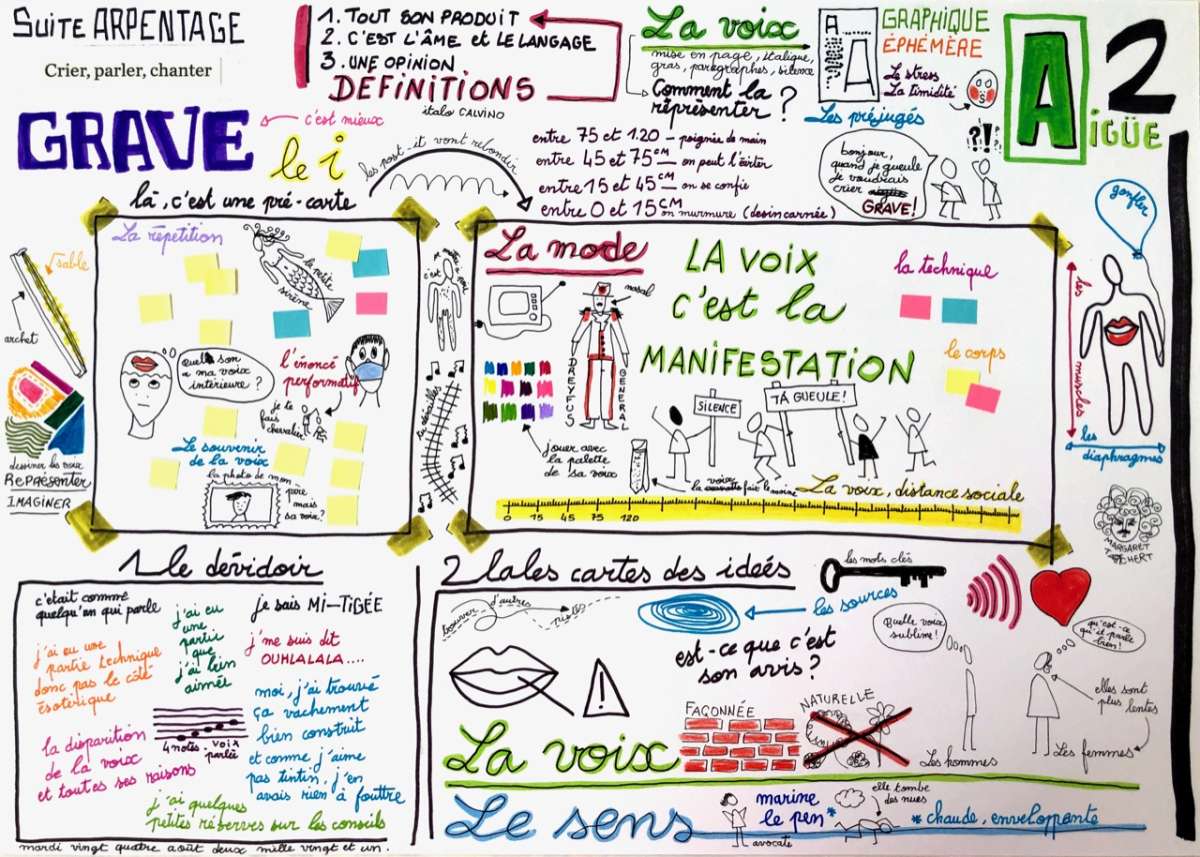 SUITE ARPENTAGE
Crier, parler, chanter
1. TOUT SON PRODUIT
2. C'EST L'ÂME et LE LANGAGE
3. UNE OPINION
DEFINITIONS
italo CALVINO
La voix
mise en page, italique,
gras, paragraphes, silence
Comment la
réprésenter ?
A
A
GRAPHIQUE
ÉPHÉMÈRE
Le stress
La timidité
Les préjugés
?!!
A
IGÜE
2
GRAVE
c'est mieux
le i
les post-it vont rebondir
là, c'est une pré-carte
entre 75 et 120 — poignée de main
entre 45 et 75 cm — on peut l'éviter
entre 15 et 45 cm — on se confie
entre 0 et 15 cm on murmure (desincarnée)
bonjour,
quand je gueule
je voudrais
crier
GRAVE !
sable
archet
dessiner les voix
REPRÉSENTER
IMAGINER
La répetition
la petite
sirène
Quel son
a ma voix
intérieure ?
l'énoncé
performatif
je te
fais
chevalier
Le souvenir
de la voix
la photo de mon
père
mais
sa voix ?
c'est
tu dérailles
La mode
nasal
DREYFUS
GENERAL
jouer avec
la palette
de sa voix
LA VOIX
c'est la
MANIFESTATION
SILENCE
TA GUEULE !
la technique
le corps
la voix fait le moine
La voix, distance sociale
0 15 45 75 120
gonfler
les muscles
les
diaphragmes
MARGARET
TATCHERT
1 le dévidoir
c'était comme
quelqu'un qui parle
j'ai eu
une
partie
que
j'ai bien
aimée
je sais MI-TIGÉE
j'me suis dit
OUHLALALA....
j'ai eu une
partie technique
donc pas le côté
ésotérique
moi, j'ai trouvé
ça vachement
bien construit
et comme j'aime
pas tintin, j'en
avais rien à fouttre
la disparition
de la voix
et toutes ses raisons
4 notes - voix
parlée
j'ai quelques
petites réserves sur les conseils
mardi vingt quatre août deux mille vingt et un.
2 lales cartes des ideés
les mots clés
trouver d'autres
les sources
est-ce que c'est
son avis ?
FAÇONNÉE
NATURELLE
La voix
Quelle voix
sublime !
qu'est-ce
qu'il parle
bien !
elles sont
plus lentes
Les hommes
Les femmes
Le sens
marine
le pen*
avocate
elle tombe
des nues
* chaude, enveloppante